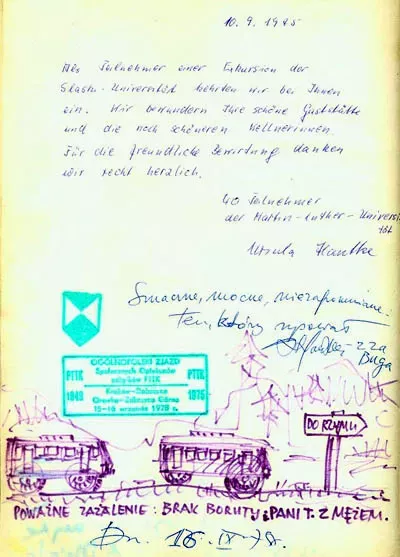 10.9.1975
Als Teilnehmer einer Exkursion der
Slask-Universität kehrten wir bei Ihnen
ein. Wir bewundern Ihre schöne Gaststätte
und die noch schöneren Kellnerinnen
Für die freundliche Bewirtung danken
wir recht herzlich.
40 Teilnehmer
der Martin-Luther-Universi
tät
Ursula
Smaczne, mocne, niezapomniane.
Ten, który
z za
Buga
OGÓLNOPOLSKI ZJAZD
PTTK Społecznych Opiekunów PTTK
zabytków PTTK
1949 1975
15-16 września 1975 r.
DO RZYMU
POWAŻNE ZAŻALENIE: BRAK BORUTY I PANI T. Z MĘŻEM.
Dn. 16.IX.75r.